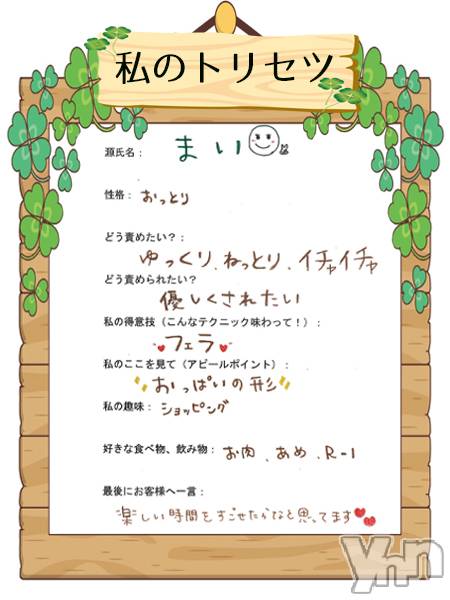 私のトリセツ
源氏名： まい
性格： おっとり
どう責めたい？：
ゆっくり、ねっとり、イチャイチャ
どう責められたい？
優しくされたい
私の得意技（こんなテクニック味わって！）：
フェラ
私のここを見て（アピールポイント）：
おっぱいの形
私の趣味： ショッピング
好きな食べ物、飲み物： お肉、あめ、R-1
最後にお客様へ一言：
楽しい時間をすごせたらなと思ってます
yhnn